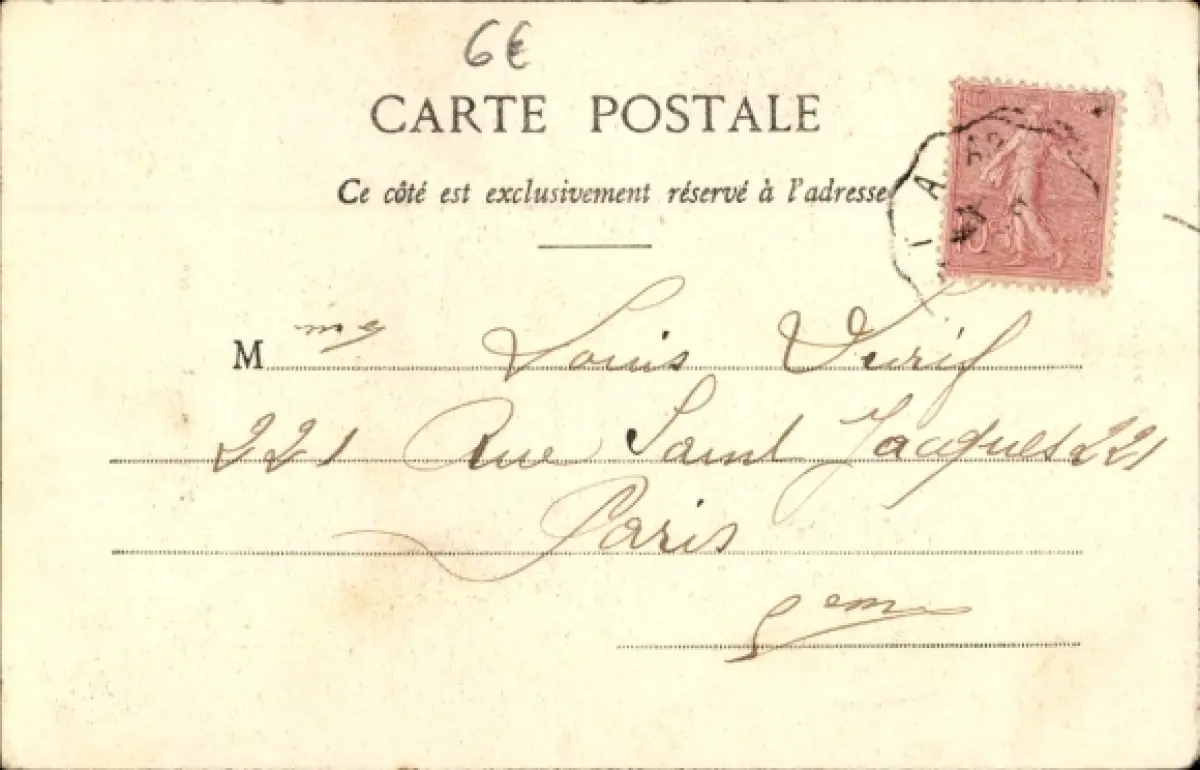 6€
CARTE POSTALE
Ce côté est exclusivement réservé à l'adresse
Mme Louis Durif
221 Rue Saint Jacques 221
Paris
5eme
10